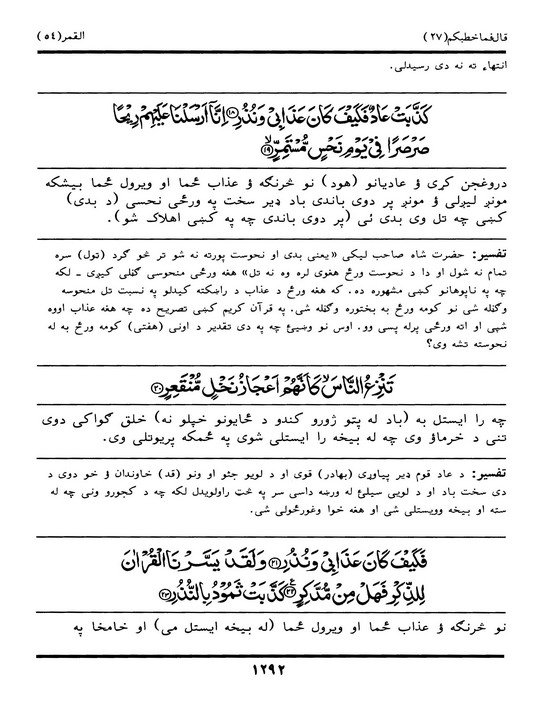 قال فما خطبکم (۲۷) القمر (۵۴)
انتهاء ته نه دی رسیدلی.
كَذَّبَتْ عَادٌ فَكَيْفَ كَانَ عَذَابِي وَنُذُرِ ﴿۱۸﴾ إِنَّا أَرْسَلْنَا عَلَيْهِمْ رِيحًا
صَرْصَرًا فِي يَوْمِ نَحْسٍ مُّسْتَمِرٍّ ﴿۱۹﴾
دروغجن کړی ؤ عادیانو (هود) نو څرنګه ؤ عذاب ځما او ویرول ځما بیشکه
مونږ لیږلی ؤ مونږ پر دوی باندی باد ډیر سخت په ورځی نحسی (د بدی)
کښی چه تل وی بدی ئی (پر دوی باندی چه په کښی اهلاک شو).
تفسیر: حضرت شاه صاحب لیکی «یعنی بدی او نحوست پورته نه شو تر څو ګرد (ټول) سره
تمام نه شول او دا د نحوست ورځ هغوی لره وه نه تل» هغه ورځی منحوسی ګڼلی کیږی ـ لکه
چه په ناپوهانو کښی مشهوره ده. که هغه ورځ د عذاب د راښکته کیدلو په نسبت تل منحوسه
وګڼله شی نو کومه ورځ به بختوره وګڼله شی. په قرآن کریم کښی تصریح ده چه هغه عذاب اووه
شپی او اته ورځی پرله پسی وو. اوس نو وښیئ چه په دی تقدیر د اونی (هفتی) کومه ورځ به له
نحوسته تشه وی؟
تَنزِعُ النَّاسَ كَأَنَّهُمْ أَعْجَازُ نَخْلٍ مُّنقَعِرٍ ﴿۲۰﴾
چه را ایستل به (باد له پټو ژورو کندو د ځایونو خپلو نه) خلق ګواکی دوی
تنی د خرماؤ وی چه له بیخه را ایستلی شوی په ځمکه پریوتلی وی.
تفسیر: د عاد قوم ډیر پیاوړی (بهادر) قوی او د لویو جثو او ونو (قد) خاوندان ؤ خو دوی د
دی سخت باد او د لویی سیلئ له ورښه داسی سر په څټ راولویدل لکه چه د کجورو ونی چه له
سته او بیخه وویستلی شی او هغه خوا وغورځولی شی.
فَكَيْفَ كَانَ عَذَابِي وَنُذُرِ ﴿۲۱﴾ وَلَقَدْ يَسَّرْنَا الْقُرْآنَ
لِلذِّكْرِ فَهَلْ مِن مُّدَّكِرٍ ﴿۲۲﴾ كَذَّبَتْ ثَمُودُ بِالنُّذُرِ ﴿۲۳﴾
نو څرنګه ؤ عذاب ځما او ویرول ځما (له بیخه ایستل می) او خامخا په
۱۲۹۲